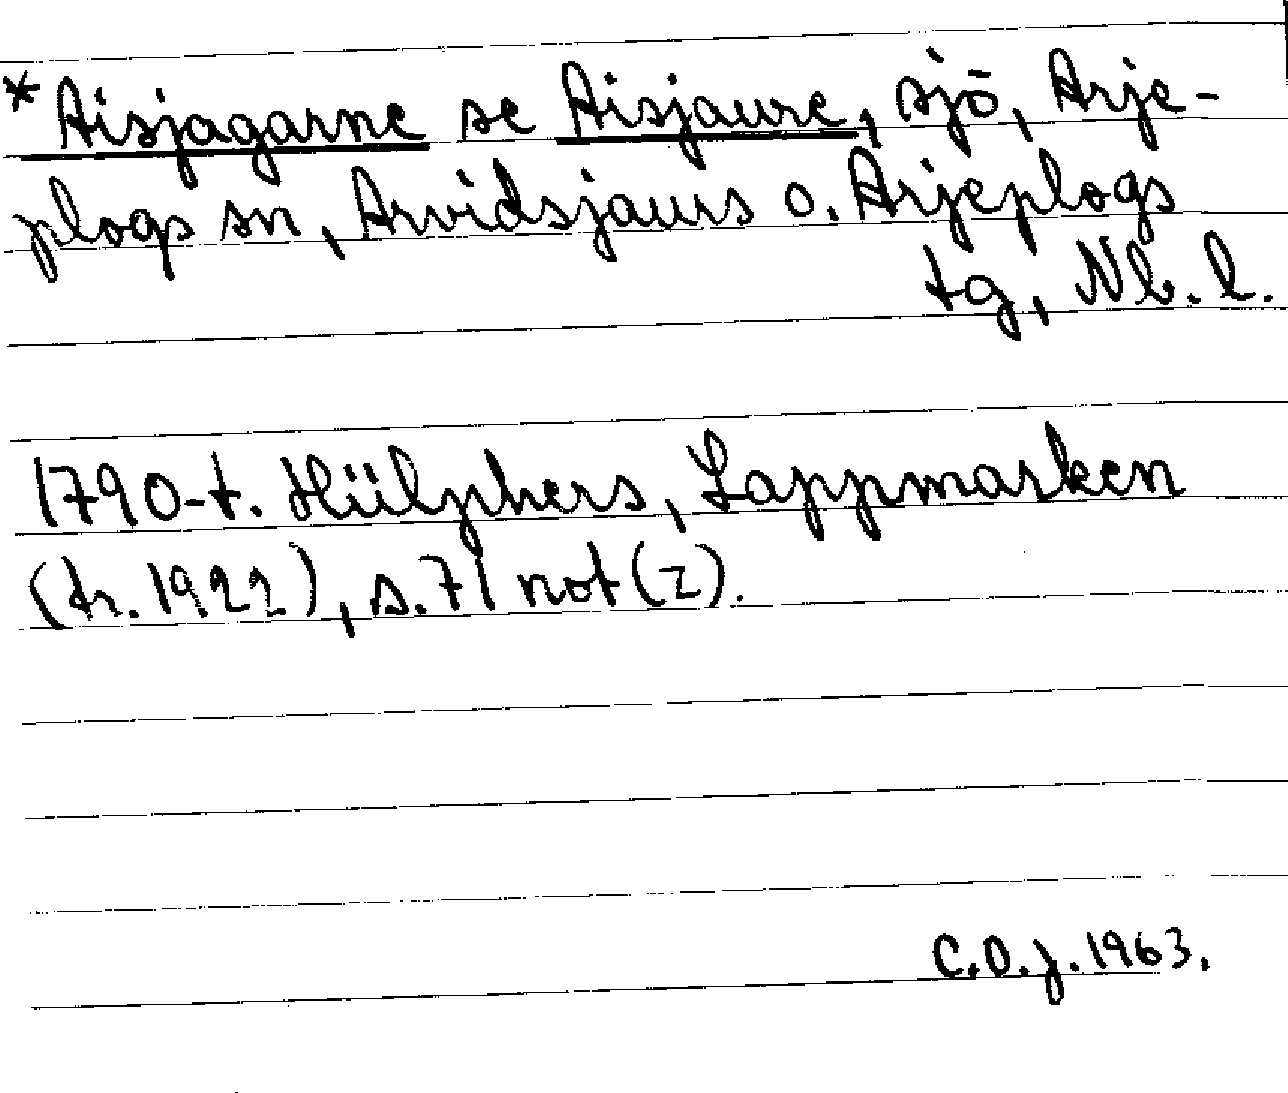 * Aisjagarne se Aisjaure, sjö, Arje-
plogs sn, Arvidsjaurs o. Arjeplogs
tg, Nb. l.
1790-t. Hülphers, Lappmarken
(tr. 1922), s. 71 not (z).
C.O.J. 1963.